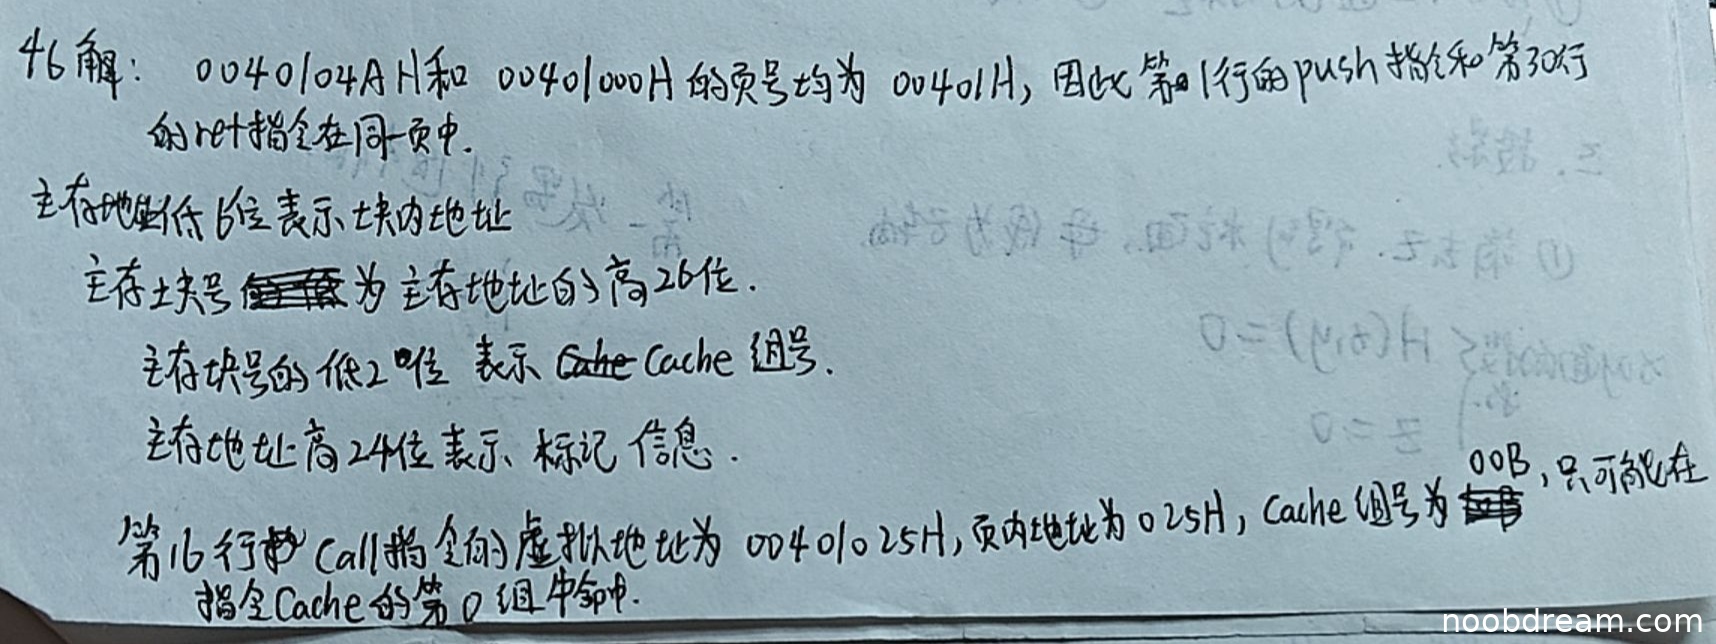 46解: 0040104AH和 00401000H的页号均为 00401H, 因此 第1行的push指令和第30行
的ret指令在同一页中.
主存地址低6位表示块内地址
主存块号为主存地址的高26位.
主存块号的低2位 表示 Cache 组号.
主存地址高24位表示 标记 信息.
第16行call指令的虚拟地址为 00401025H, 页内地址为025H, Cache组号为 00B, 只可能在
指令Cache的第0组中命中.
noobdream.com